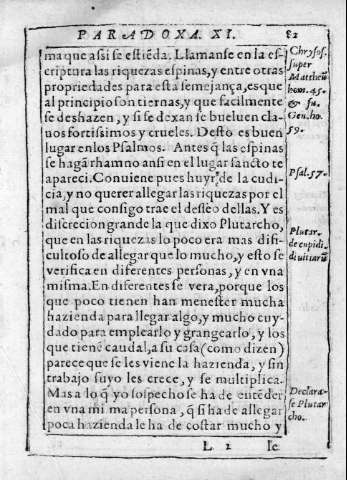 PARADOXA. XI. 82
ma que assi se estiẽda. Llamanse en la es-
criptura las riquezas espinas, y entre otras
propriedades para esta semejança, es que
al principio son tiernas, y que facilmente
se deshazen, y si se dexan se bueluen cla-
uos fortissimos y crueles. Desto es buen
lugar en los Psalmos. Antes q̃ las espinas
se hagã rhamno ansi en el lugar sancto te
apareci. Conuiene pues huyr de la cudi-
cia, y no querer allegar las riquezas por el
mal que consigo trae el desseo dellas. Y es
discrecion grande la que dixo Plutarcho,
que en las riquezas lo poco era mas difi-
cultoso de allegar que lo mucho, y esto se
verifica en diferentes personas, y en vna
misma. En diferentes se vera, porque los
que poco tienen han menester mucha
hazienda para llegar algo, y mucho cuy-
dado para emplearlo y grangearlo, y los
que tienẽ caudal, a su casa (como dizen)
parece que se les viene la hazienda, y sin
trabajo suyo les crece, y se multiplica.
Mas a lo q̃ yo sospecho se ha de entẽder
en vna mi ma persona, q̃ si ha de allegar
poca hazienda le ha de costar mucho y
L 2 se
Chrysos.
super
Mattheũ
hom. 45.
& su.
Gen. ho.
59.
Psal. 57.
Plutar.
de cupidi.
diuitiarũ
Declara-
se Plutar
cho.